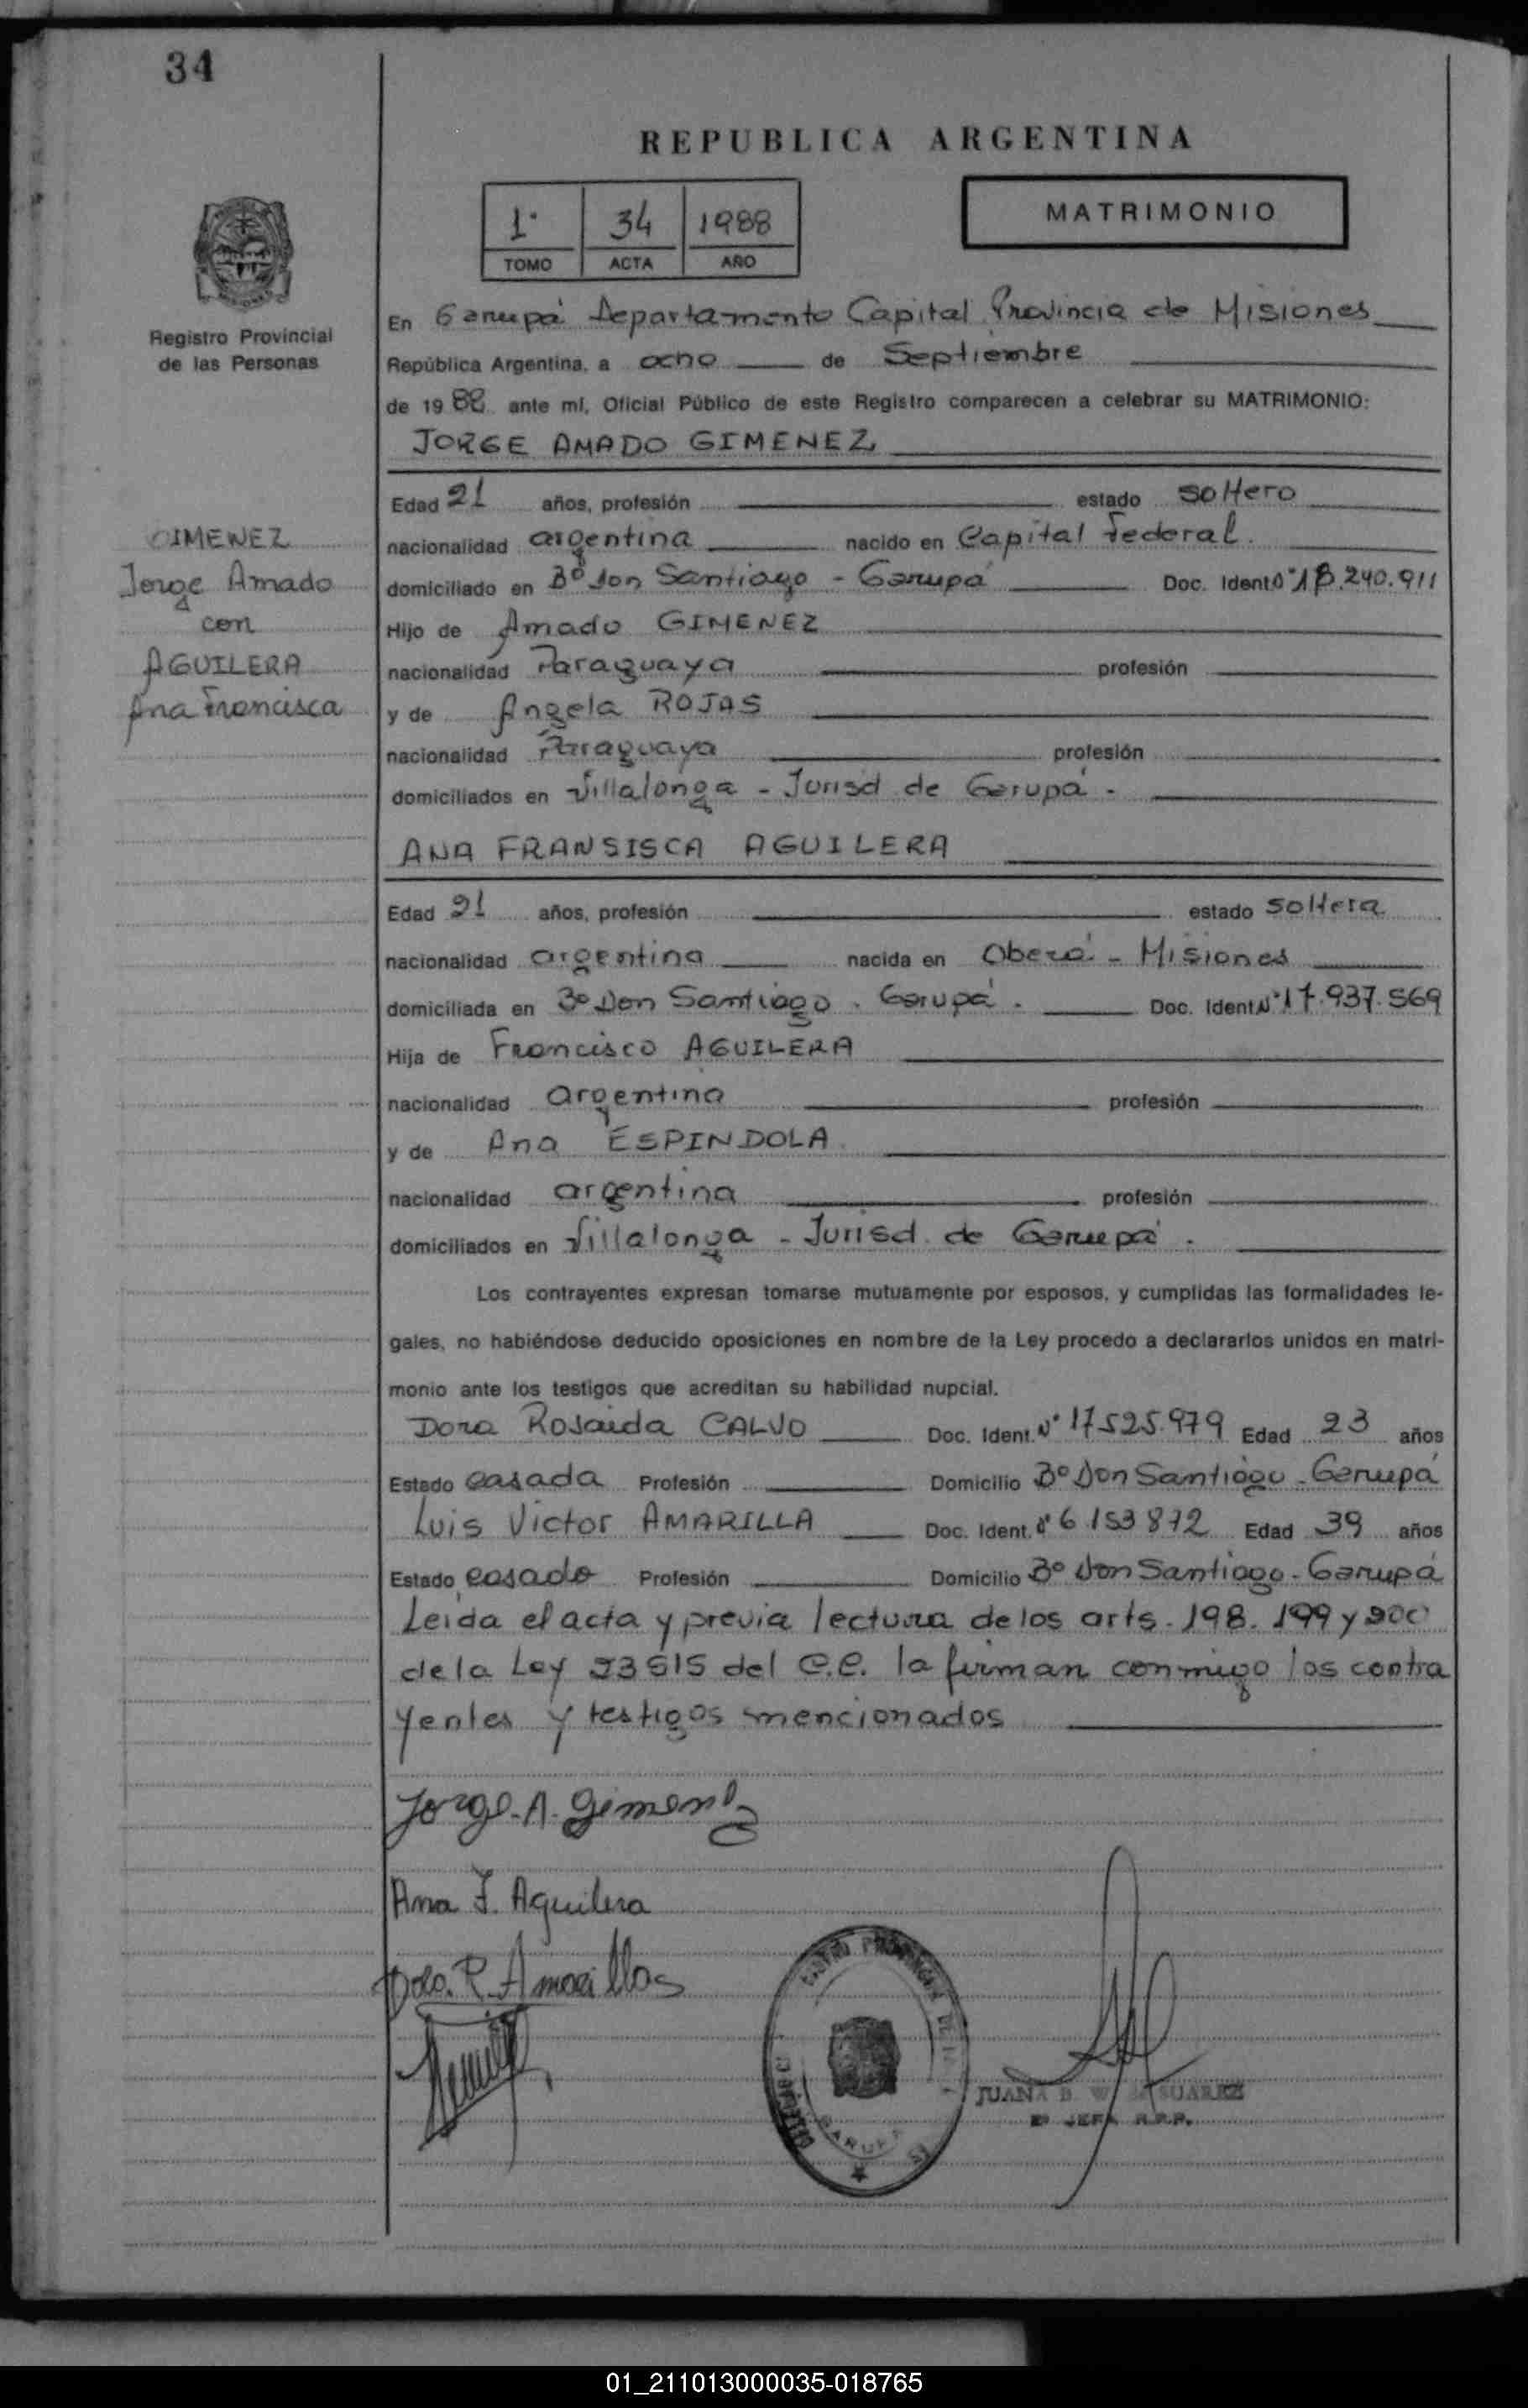 34
REPUBLICA ARGENTINA
1° 34 1988
TOMO ACTA AÑO
MATRIMONIO
Registro Provincial
de las Personas
En Garupá Departamento Capital Provincia de Misiones
República Argentina, a ocho de Septiembre
de 1988 ante mí, Oficial Público de este Registro comparecen a celebrar su MATRIMONIO:
JORGE AMADO GIMENEZ
GIMENEZ
Jorge Amado
con
AGUILERA
Ana Francisca
Edad 21 años, profesión estado soltero
nacionalidad argentina nacido en Capital Federal.
domiciliado en B° Don Santiago - Garupá Doc. Ident N° 18.240.911
Hijo de Amado GIMENEZ
nacionalidad Paraguaya profesión
y de Angela ROJAS
nacionalidad Paraguaya profesión
domiciliados en Villalonga - Jurisd de Garupá.
ANA FRANSISCA AGUILERA
Edad 21 años, profesión estado soltera
nacionalidad argentina nacida en Oberá - Misiones
domiciliada en B° Don Santiago. Garupá. Doc. Ident N° 17.937.569
Hija de Francisco AGUILERA
nacionalidad argentina profesión
y de Ana ESPINDOLA
nacionalidad argentina profesión
domiciliados en Villalonga - Jurisd. de Garupá.
Los contrayentes expresan tomarse mutuamente por esposos, y cumplidas las formalidades le-
gales, no habiéndose deducido oposiciones en nombre de la Ley procedo a declararlos unidos en matri-
monio ante los testigos que acreditan su habilidad nupcial.
Dora Rosaida CALVO Doc. Ident. N° 17525.979 Edad 23 años
Estado casada Profesión Domicilio B° Don Santiago - Garupá
Luis Victor AMARILLA Doc. Ident. N° 6.153872 Edad 39 años
Estado casado Profesión Domicilio B° Don Santiago - Garupá
Leida el acta y previa lectura de los arts. 198. 199 y 200
de la Ley 23515 del C.C. la firman conmigo los contra
yentes y testigos mencionados
Jorge. A. Gimenez
Ana F. Aguilera
R. Amarilla
GARUPA
JUANA B. W. SUAREZ
JEFA R.P.P.
01_211013000035-018765